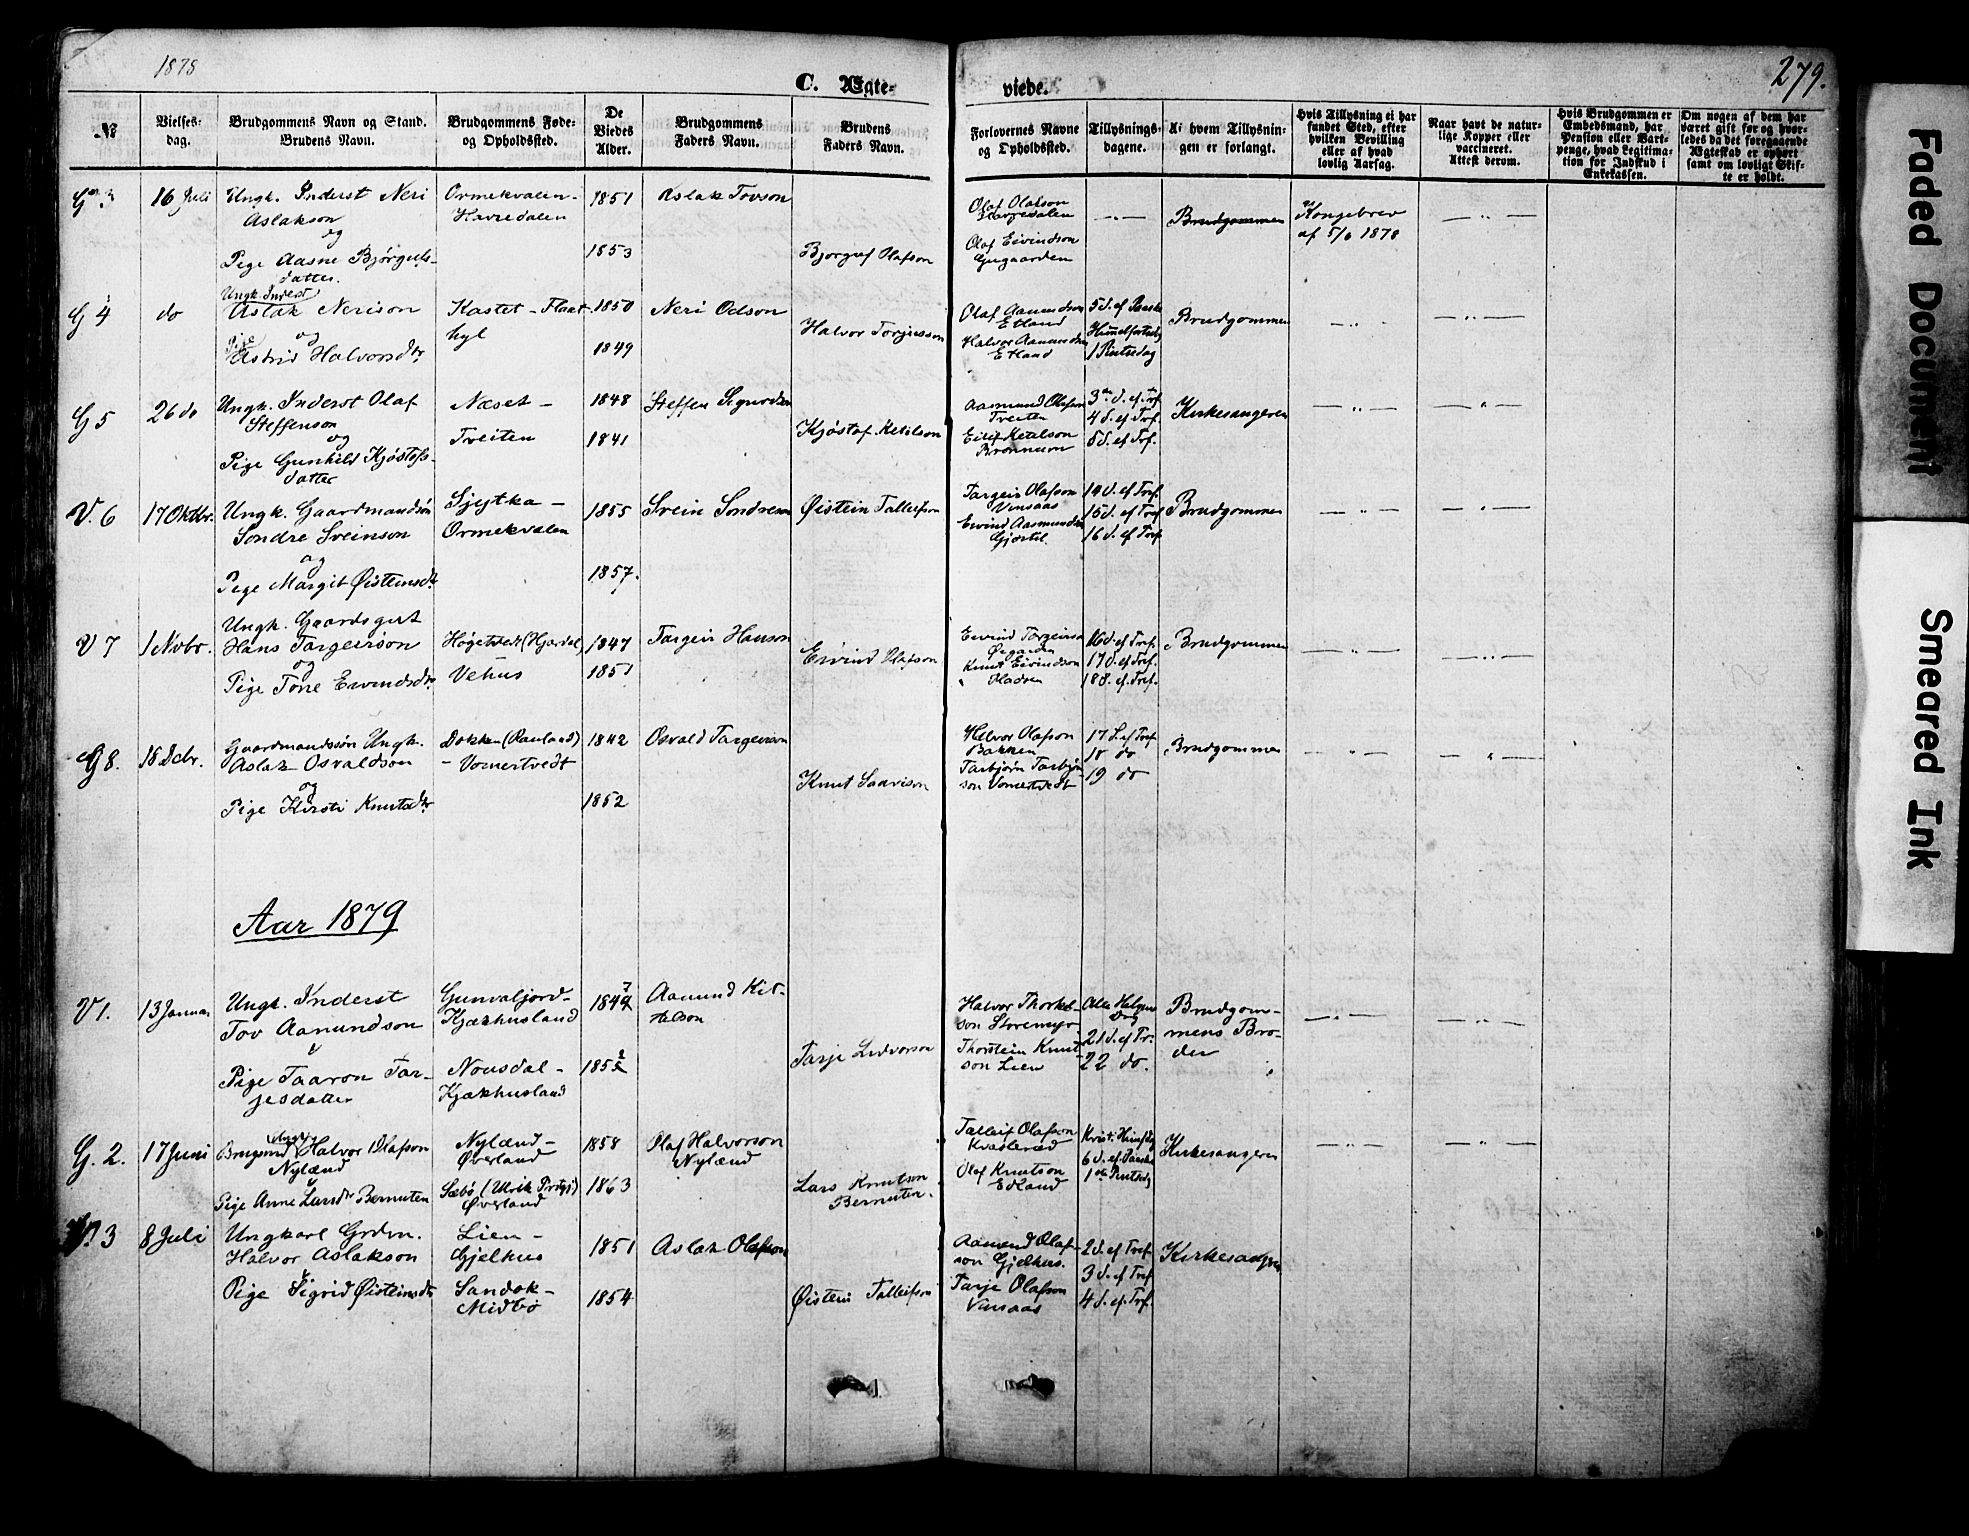 1878
C. Ægte-
viede.
279.
№
Vielses-
dag.
Brudgommens Navn og Stand.
Brudens Navn.
Brudgommens Føde-
og Opholdssted.
De
Viedes
Alder.
Brudgommens
Faders Navn.
Brudens
Faders Navn.
Forlovernes Navne
og Opholdssted.
Tillysnings-
dagene.
Af hvem Tillysnin-
gen er forlangt.
Hvis Tillysning ei har
fundet Sted, efter
hvilken Bevilling
eller af hvad
lovlig Aarsag.
Naar havt de natur-
lige Kopper eller
vaccineret.
Attest derom.
Hvis Brudgommen er
Embedsmand, har
Pension eller Vart-
penge, hvad Legitima-
tion for Indskud i
Enkekassen.
Om nogen af dem har
været gift før og hvor-
ledes da det foregaaende
Ægteskab er ophørt
samt om lovligt Skif-
te er holdt.
G. 3
16 Juli
Ungk. Inderst Neri
Aslakson
og
Pige Aasne Bjørguls-
datter.
Ormekvalen-
Havredalen
1851
1853
Aslak Tovson
Bjorguf Olafson
Olaf Olafson
Havredalen
Olaf Eivindson
—"—
Brudgommen
Kongebrev
af 5/6 1878
—"—
G 4
do
Ungk. Inderst
Aslak Nerison
og
Pige
Astrid Halvorsdtr
Kastet - Flaat-
byl
1850
1849
Neri Odson
Halvor Torjusson
Olaf Aamundson
Edland
Halvor Aamundson
Edland
5 S. ef Paaske
Himmelfartsdag
1 Pintsedag
Brudgommen
—"—
—"—
G 5
26 do
Ungk. Inderst Olaf
Steffenson
og
Pige Gunhild Kjøstofs-
datter
Næset -
Tveiten
1848
1841
Steffen Sigurdson
Kjøstof Ketilson
Aasmund Olafson
Tveiten
Eilif Ketelson
3die S. ef Tref
4 S. ef Tref.
5 S. ef Tref.
Kirkesangeren
—"—
—"—
V. 6
17 Oktbr.
Ungk. Gaardmandsøn
Sondre Sveinson
og
Pige Margit Øisteinsdtr
Ormekvalen
1855
1857.
Svein Sondreson
Øistein Talleifson
Targeir Olafson
Vinsaas
Eivind Aasmundson
14 S. ef Tref.
15 S. ef Tref
16 S. ef Tref
Brudgommen
—"—
—"—
V 7
1 Novbr.
Ungk. Gaardsgut
Hans Targeirson
og
Pige Tone Eivindsdtr
Høgetvedt (Hjardal)
Vehus
1847
1851
Targeir Hanson
Eivind Olafson
Eivind Targeirson
Øigarden
Knut Eivindson
16 S. ef Tref.
17 S. ef Tref.
18 S. ef Tref.
Brudgommen
—"—
—"—
G 8.
18 Dcbr.
Gaardmandssøn Ungk.
Aslak Osvaldson
og
Pige Kirsti Knutsdtr
Dokken (Rauland)
- Vomertvedt
1842
1852
Osvald Targeirson
Knut Saavison
Helvor Olafson
Bakken
Tarbjørn Tarbjørn-
son Vomertvedt
17 S. ef Tref
18 do
19 do
Brudgommen
—"—
—"—
Aar 1879
V 1.
13 Januar
Ungk. Inderst
Tov Aanundson
Pige Taaron Tar-
jesdatter
Gunvaljord-
Kjækhusland
Nousdal -
Kjækhusland
Aanund Kit-
telson
Tarje Ledvorson
Halvor Thorkel-
son Storemyr
Thorstein Knut-
son Lien
Alle Helgens
Dag
21 S. ef Tr.
22 do.
Brudgom-
mens Bro-
der
—"—
—"—
G. 2.
17 Juni
Ungk.
Brugsmd Halvor Olafson
Nylænd
Pige Anne Larsdtr Bernuten
Nylænd -
Øverland
Sæbø
Øverland
1858
1863
Olaf Halvorson
Nylænd
Lars Knutson
Bernuten.
Talleif Olafson
Kvaslerød
Olaf Knutson
Edland
Krist. Himfdg
6 S. ef. Paaske
1ste Pintsedg
Kirkesangeren
—"—
—"—
V. 3
8 Juli
Ungkarl Grdm.
Halvor Aslakson
Pige Sigrid Øisteinsdtr
Lien -
Gjelhus
Sandok -
Midbø
1851
1854
Aslak Olafson
Øistein Talleifson
Aamund Olaf-
son Gjelhus.
Tarje Olafson
Vinsaas
2 S. ef Tref
3 S. ef Tref
4 S. ef. Tref.
Kirkesangeren
Faded Document
Smeared Ink